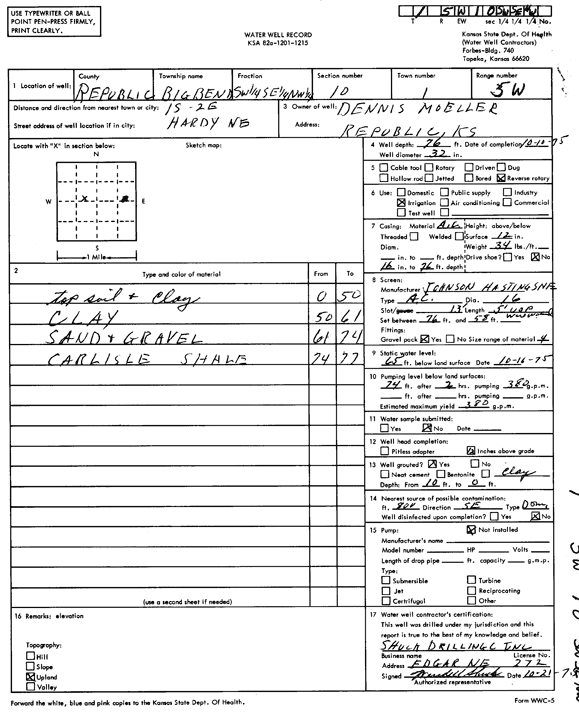 USE TYPEWRITER OR BALL
POINT PEN-PRESS FIRMLY,
PRINT CLEARLY.
WATER WELL RECORD
KSA 82a-1201-1215
1 5W 10 SW SE NW
T R EW sec 1/4 1/4 1/4 No.
Kansas State Dept. Of Health
(Water Well Contractors)
Forbes-Bldg. 740
Topeka, Kansas 66620
1 Location of well: County REPUBLIC Township name BIG BEND Fraction SW 1/4 SE 1/4 NW 1/4 Section number 10 Town number 1 Range number 5W
Distance and direction from nearest town or city: 1S-2E
Street address of well location if in city: HARDY NE
3 Owner of well: DENNIS MOELLER
Address: REPUBLIC, KS
Locate with "X" in section below:
Sketch map:
N
W X E
S
1 Mile
4 Well depth: 76 ft. Date of completion 10-10-75
Well diameter 32 in.
5 Cable tool Rotary Driven Dug
Hollow rod Jetted Bored X Reverse rotary
6 Use: Domestic Public supply Industry
X Irrigation Air conditioning Commercial
Test well
7 Casing: Material A.C. Height: above/below
Threaded Welded Surface 12 in.
Diam. Weight 34 lbs./ft.
16 in. to ft. depth Drive shoe? Yes X No
16 in. to 76 ft. depth
2 Type and color of material From To
top soil & Clay 0 50
CLAY 50 61
SAND & GRAVEL 61 74
CARLISLE SHALE 74 77
(use a second sheet if needed)
8 Screen:
Manufacturer JOHNSON HASTINGS NE
Type A.C. Dia. 16
Slot/gauze 13 Length
Set between 76 ft. and 58 ft.
Fittings:
Gravel pack X Yes No Size range of material 4
9 Static water level:
65 ft. below land surface Date 10-16-75
10 Pumping level below land surfaces:
74 ft. after 2 hrs. pumping 380 g.p.m.
ft. after hrs. pumping g.p.m.
Estimated maximum yield 380 g.p.m.
11 Water sample submitted:
Yes X No Date
12 Well head completion:
Pitless adapter Inches above grade
13 Well grouted? X Yes No
Neat cement Bentonite Clay
Depth: From 10 ft. to 0 ft.
14 Nearest source of possible contamination:
ft. Direction SE Type
Well disinfected upon completion? Yes X No
15 Pump: X Not installed
Manufacturer's name
Model number HP Volts
Length of drop pipe ft. capacity g.m.p.
Type:
Submersible Turbine
Jet Reciprocating
Certrifugal Other
16 Remarks: elevation
Topography:
Hill
Slope
X Upland
Valley
17 Water well contractor's certification:
This well was drilled under my jurisdiction and this
report is true to the best of my knowledge and belief.
SHUCK DRILLING C INC
Business name License No.
Address EDGAR NE 272
Signed Date 10-21-75
Authorized representative
Forward the white, blue and pink copies to the Kansas State Dept. Of Health.
Form WWC-5